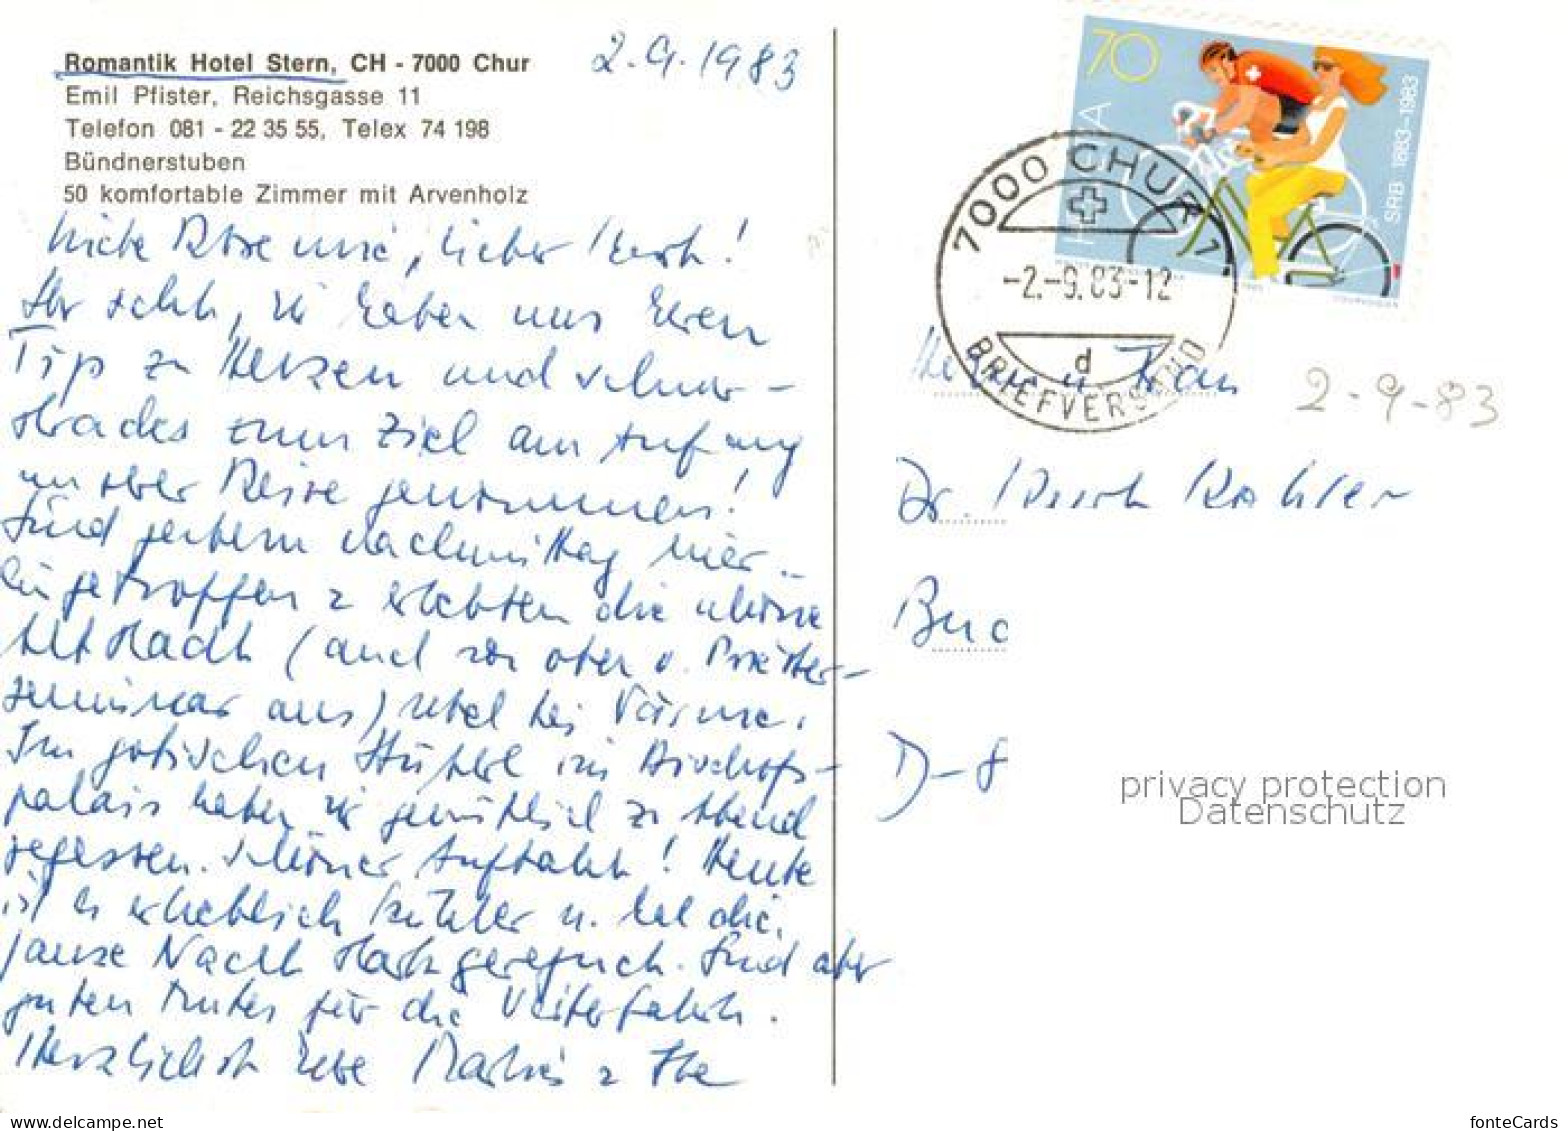 Romantik Hotel Stern, CH - 7000 Chur
2.9.1983
Emil Pfister, Reichsgasse 11
Telefon 081 - 22 35 55, Telex 74 198
Bündnerstuben
50 komfortable Zimmer mit Arvenholz
lieber Kurt!
Ihr seht, wir haben uns Euren
Tip zu Herzen und schnur-
strackes zum Ziel am Anfang
unserer Reise genommen!
Sind gestern Nachmittag hier
eingetroffen u erlebten die schöne
Altstadt (auch von oben v. Priester-
seminar aus) bei Wärme.
Im gotischen Stüberl im Bischofs-
palais haben wir gemütlich zu Abend
gegessen. Schöner Auftakt! Heute
ist es erheblich kühler u. hat die
ganze Nacht stark geregnet. Sind aber
guten Mutes für die Weiterfahrt.
Herzlichst Eure
70
HELVETIA
SRB 1883-1983
7000 CHUR 1
-2.-9.83-12
d
BRIEFVERSAND
Herrn u. Frau
2-9-83
Dr. Kurt Köhler
D-8
privacy protection
Datenschutz
delcampe.net
fonteCards